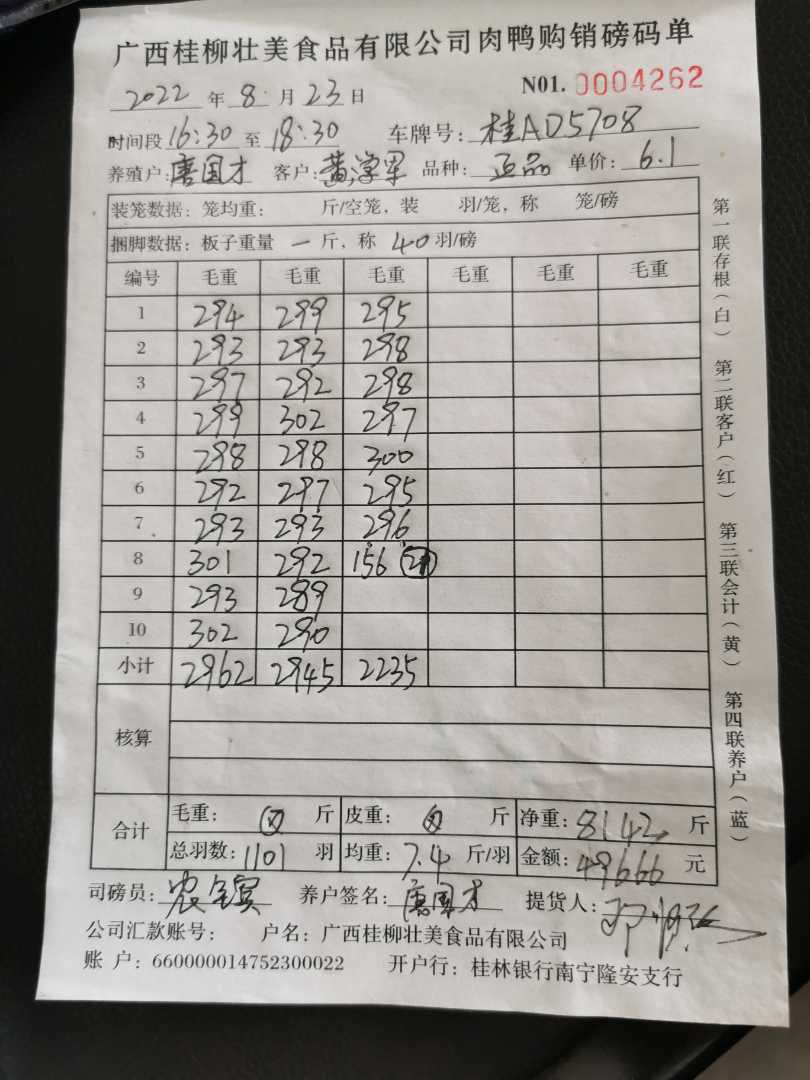 广西桂柳壮美食品有限公司肉鸭购销磅码单
2022 年 8 月 23 日 N01. 0004262
时间段 16:30 至 18:30 车牌号: 桂AD5708
养殖户: 唐国才 客户: 黄学军 品种: 正品 单价: 6.1
装笼数据: 笼均重: 斤/空笼, 装 羽/笼, 称 笼/磅
捆脚数据: 板子重量 一 斤, 称 40 羽/磅
编号 毛重 毛重 毛重 毛重 毛重 毛重
1 294 299 295
2 293 293 298
3 297 292 298
4 299 302 297
5 298 298 300
6 292 297 295
7 293 293 296
8 301 292 156 21
9 293 289
10 302 290
小计 2962 2945 2235
核算
合计 毛重: 斤 皮重: 斤 净重: 8142 斤
总羽数: 1101 羽 均重: 7.4 斤/羽 金额: 49666 元
司磅员: 农 养户签名: 唐国才 提货人:
公司汇款账号: 户名: 广西桂柳壮美食品有限公司
账 户: 660000014752300022 开户行: 桂林银行南宁隆安支行
第一联存根(白) 第二联客户(红) 第三联会计(黄) 第四联养户(蓝)